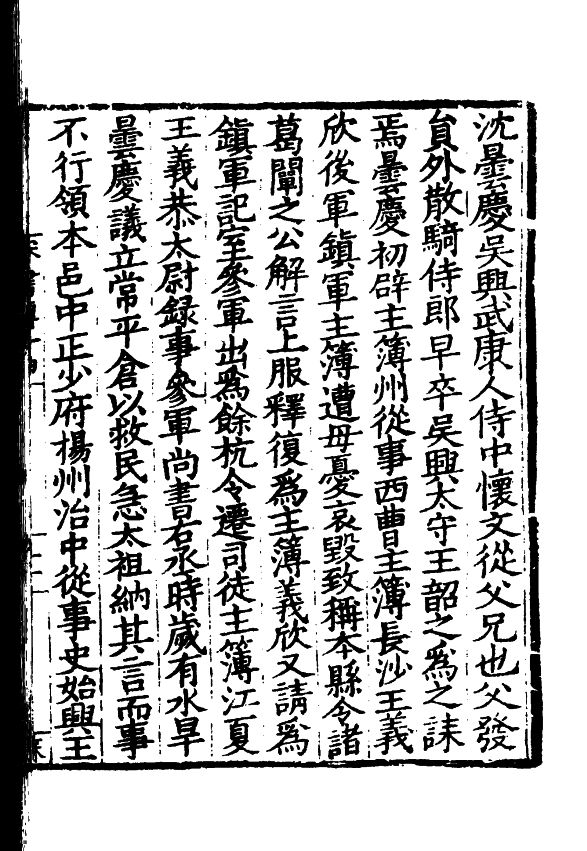 沈曇慶吳興武康人侍中懷文從父兄也父發
貟外散騎侍郎早卒吳興太守王韶之爲之誄
焉曇慶初辟主簿州從事西曹主簿長沙王義
欣後軍鎮軍主簿遭母憂哀毀致稱本縣令諸
葛闡之公解言上服釋復爲主簿義欣又請爲
鎮軍記室參軍出爲餘杭令遷司徒主簿江夏
王義恭太尉録事參軍尚書右丞時歲有水旱
曇慶議立常平倉以救民急太祖納其言而事
不行領本邑中正少府楊州治中從事史始興王